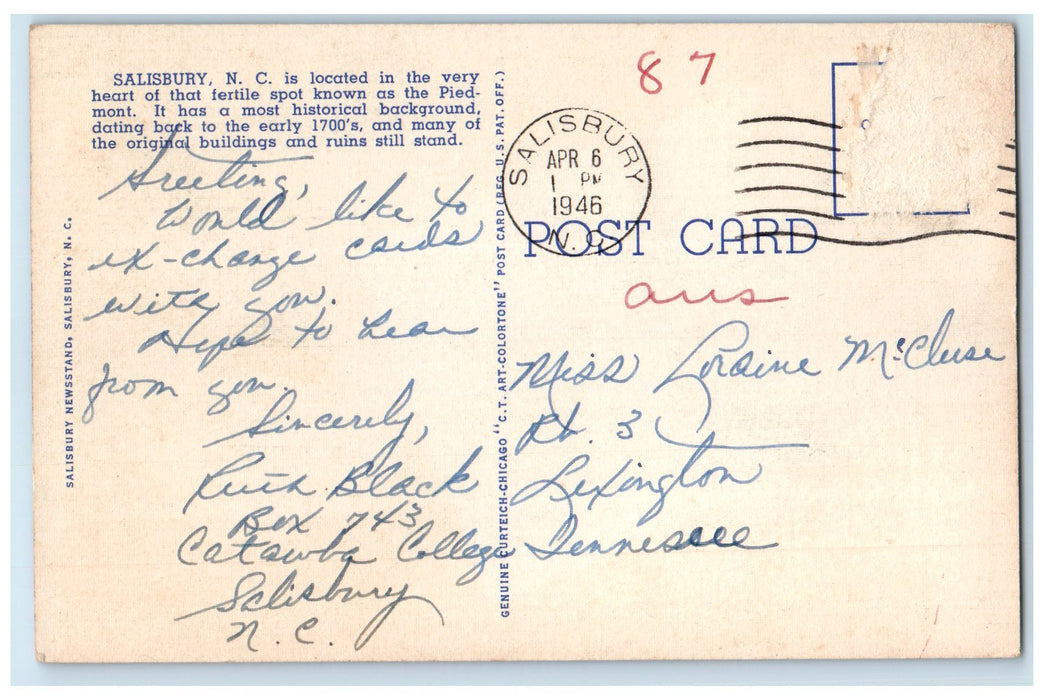 SALISBURY, N. C. is located in the very
heart of that fertile spot known as the Pied-
mont. It has a most historical background,
dating back to the early 1700's, and many of
the original buildings and ruins still stand.
Greeting,
Would like to
ex-change cards
with you.
Hope to hear
from you.
Sincerely,
Ruth Black
Box 743
Catawba College
Salisbury
N. C.
SALISBURY NEWSSTAND, SALISBURY, N. C.
GENUINE CURTEICH-CHICAGO "C.T. ART-COLORTONE" POST CARD (REG. U.S. PAT. OFF.)
87
SALISBURY
APR 6
1 PM
1946
N.C.
POST CARD
ans
Miss Loraine McCluse
Rt. 3
Lexington
Tennessee